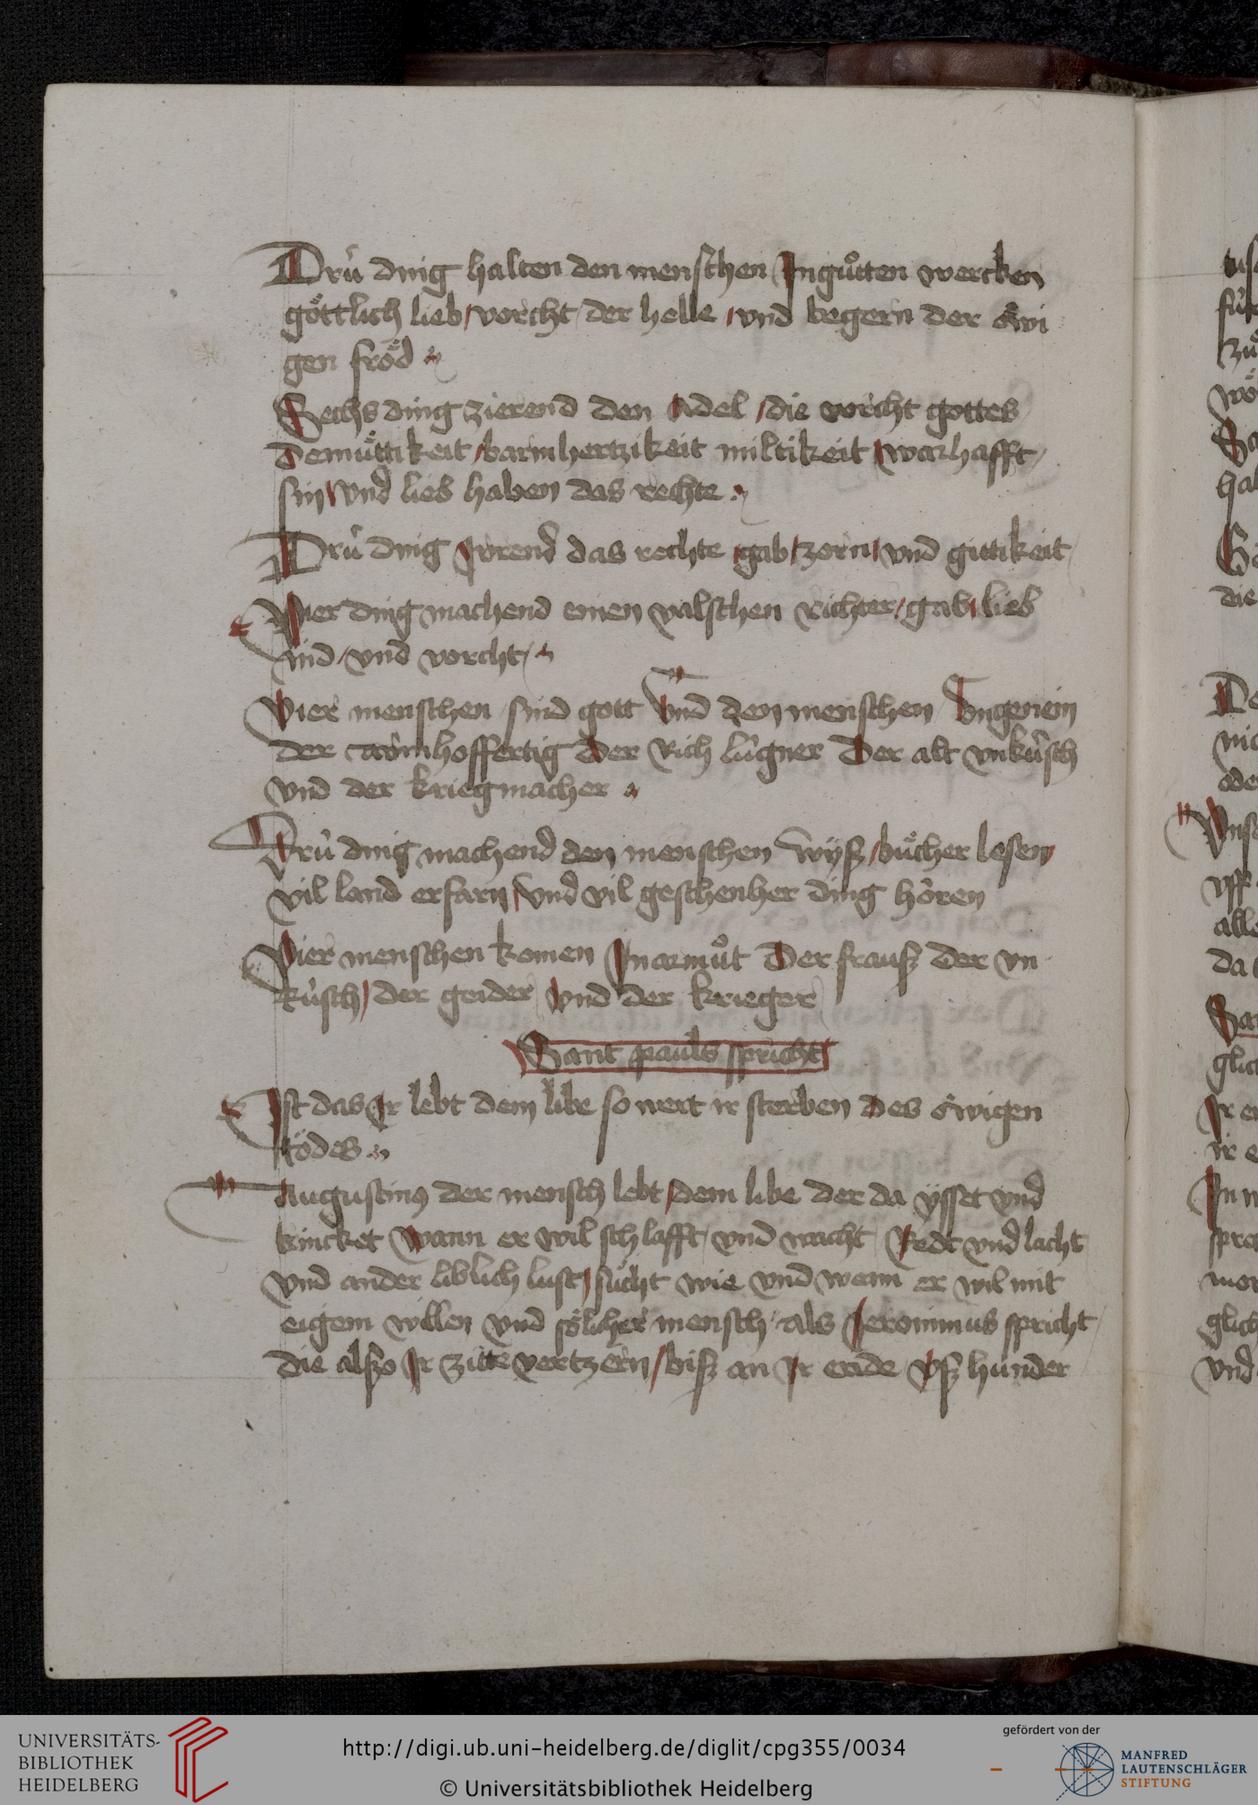 Drú ding halten den menschen In gůtten wercken
göttlich lieb / vorcht der helle / vnd begern der ewi
gen fröd
Sechs ding zierend den Adel / die vorcht gottes
demüttikeit / barmhertzikeit miltikeit / warhafft
sin / vnd lieb haben das rechte
Drú ding Irrend das rechte gab / zorn / vnd gittikeit
Vier ding machend einen valschen richter / gab / lieb
nid / vnd vorcht
Vier menschen sind gott vnd den menschen vngenem
der arm hoffertig der Rich lúgner Der alt vnkúsch
vnd der kriegmacher
Drú ding machend den menschen wyß / bücher lesen
vil land erfarn / vnd vil geschenher ding hören
Vier menschen komen In armůt Der frauß der vn
kúsch / der geider vnd der krieger
Sant pauls spricht
Ist das Ir lebt dem libe so wert ir sterben des ewigen
tödes
Augustinus der mensch lebt / dem libe der da ysset vnd
trincket Wann er wil schlafft / vnd wacht Redt vnd lacht
vnd ander liblich lust / sücht wie vnd wenn er wil mit
eigem willen vnd sölicher mensch als Jeronimus spricht
die also Ir zitte vertzern / biß an Ir ende vß hunder
UNIVERSITÄTS-
BIBLIOTHEK
HEIDELBERG
http://digi.ub.uni-heidelberg.de/diglit/cpg355/0034
© Universitätsbibliothek Heidelberg
gefördert von der
MANFRED
LAUTENSCHLÄGER
STIFTUNG